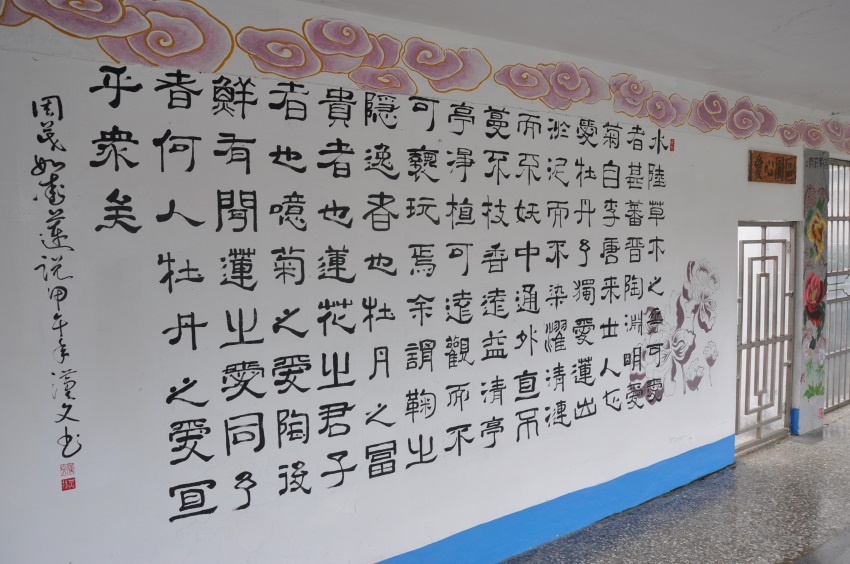 水陸草木之華可愛
者甚蕃晉陶淵明愛
菊自李唐来世人
愛牡丹予獨愛蓮出
淤泥而不染濯清漣
而不妖中通外直不
蔓不枝香遠益清亭
亭淨植可遠觀而不
可褻玩焉余謂鞠之
隱逸者也牡丹之冨
貴者也蓮花之君子
者也噫菊之愛陶後
鮮有聞蓮之愛同予
者何人牡丹之愛宜
乎衆矣
周茂叔愛蓮説甲午年漢文书